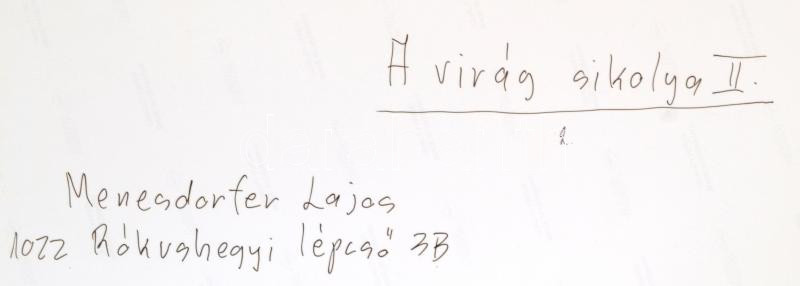 A virág sikolya II.
2.
Menesdorfer Lajos
1022 Rókushegyi lépcső 3B